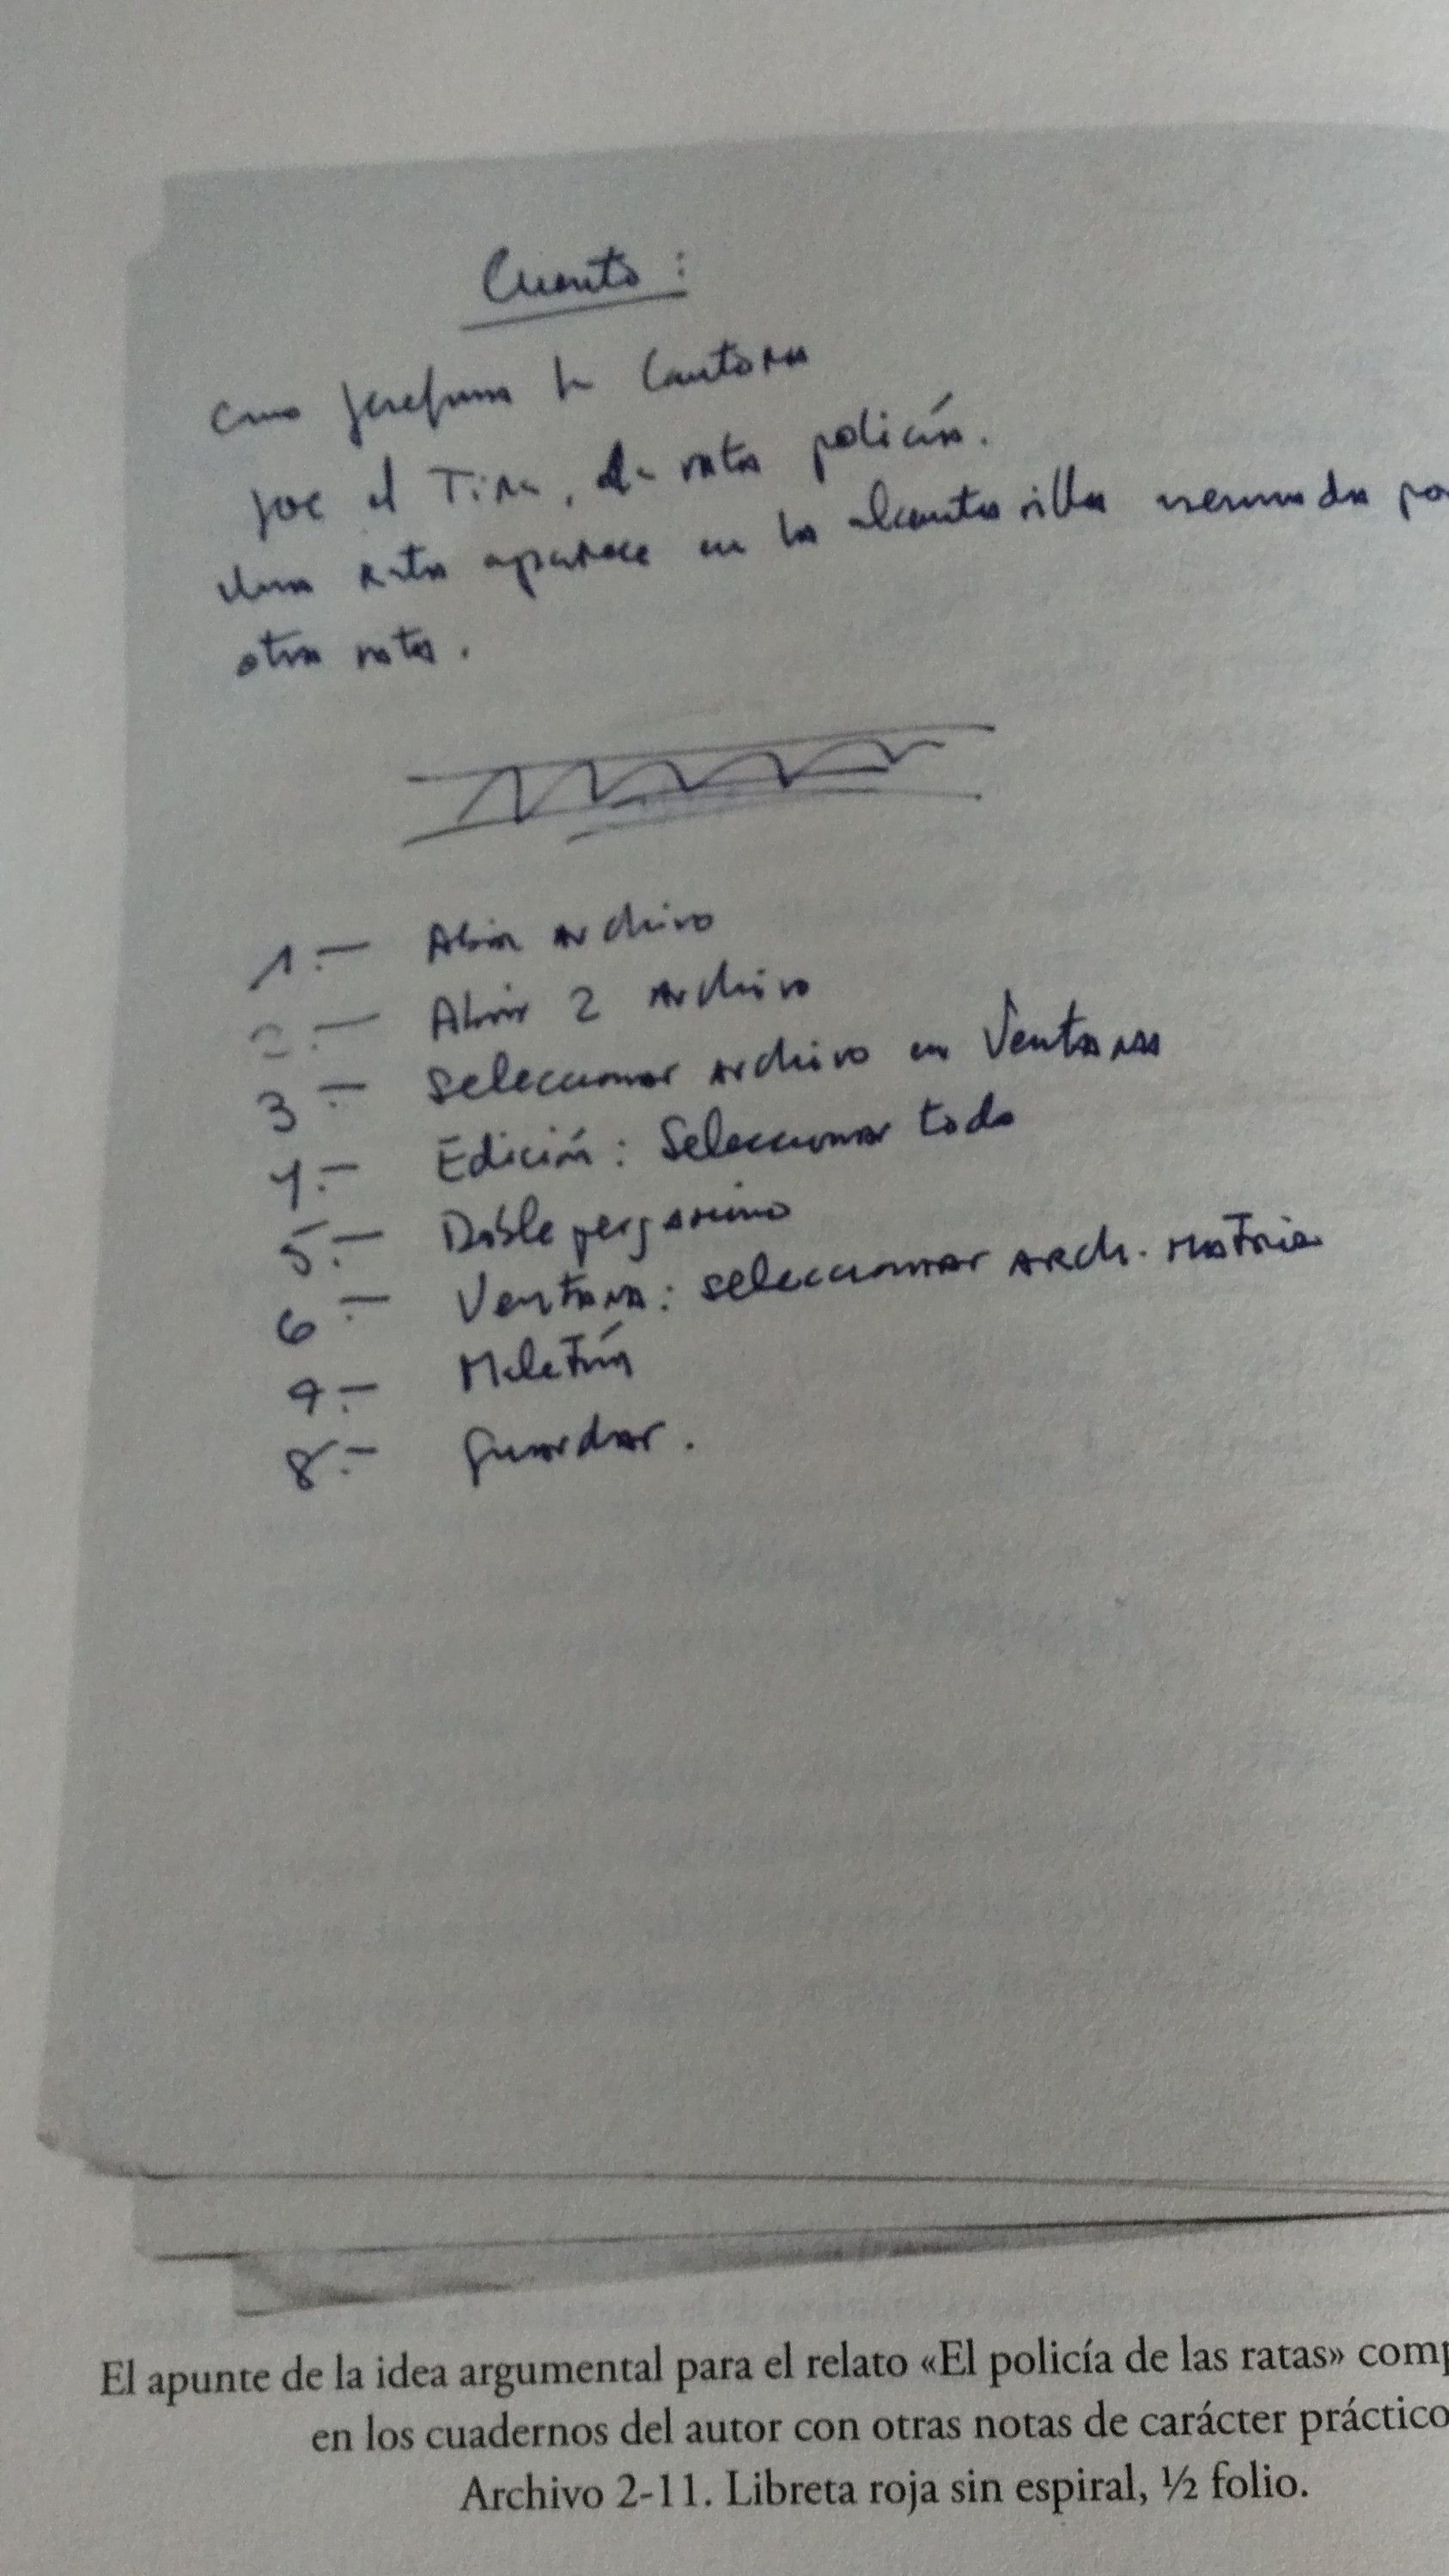 Cuento:
Como Josefina la Cantora
Joe el Tira, la rata policía.
Una rata aparece en la alcantarilla asesinada po
otra rata.
1.– Abrir archivo
2.– Abrir 2 archivo
3.– Seleccionar archivo en Ventana
4.– Edición: Seleccionar todo
5.– Doble pergamino
6.– Ventana: seleccionar Arch. matriz
7.– Maletín
8.– Guardar.
El apunte de la idea argumental para el relato «El policía de las ratas» comp
en los cuadernos del autor con otras notas de carácter práctico
Archivo 2-11. Libreta roja sin espiral, ½ folio.